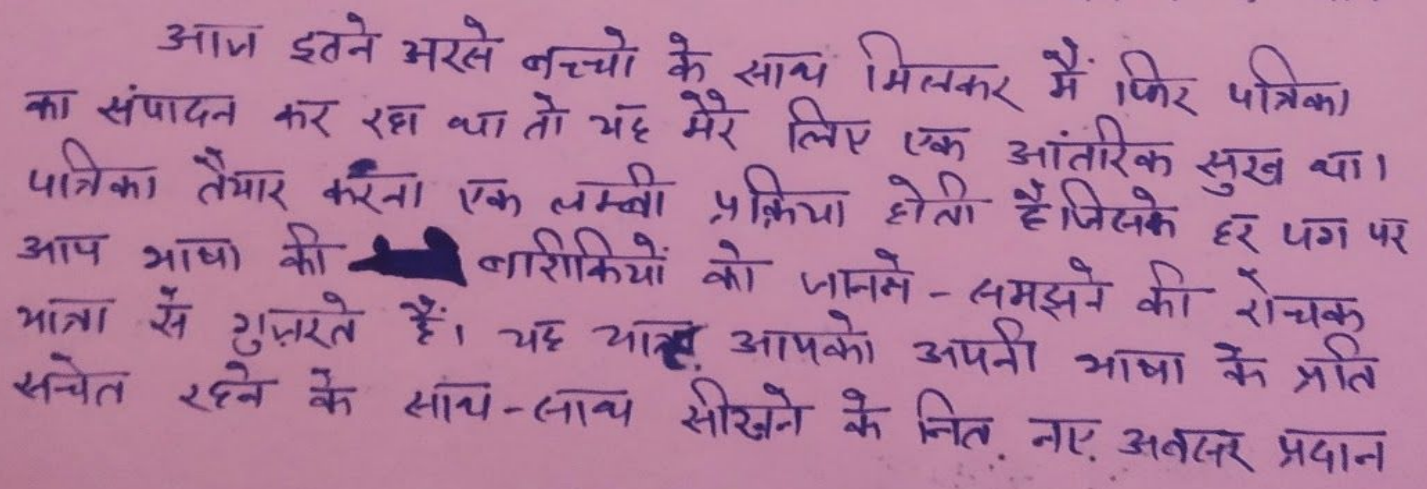 आज इतने अरसे बच्चो के साथ मिलकर मैं फिर पत्रिका
का संपादन कर रहा था तो यह मेरे लिए एक आंतरिक सुख था।
पत्रिका तैयार करना एक लम्बी प्रक्रिया होती है जिसके हर पग पर
आप भाषा की बारीकियों को जानने - समझने की रोचक
यात्रा से गुज़रते हैं। यह यात्रा आपको अपनी भाषा के प्रति
सचेत रहने के साथ-साथ सीखने के नित नए अवसर प्रदान